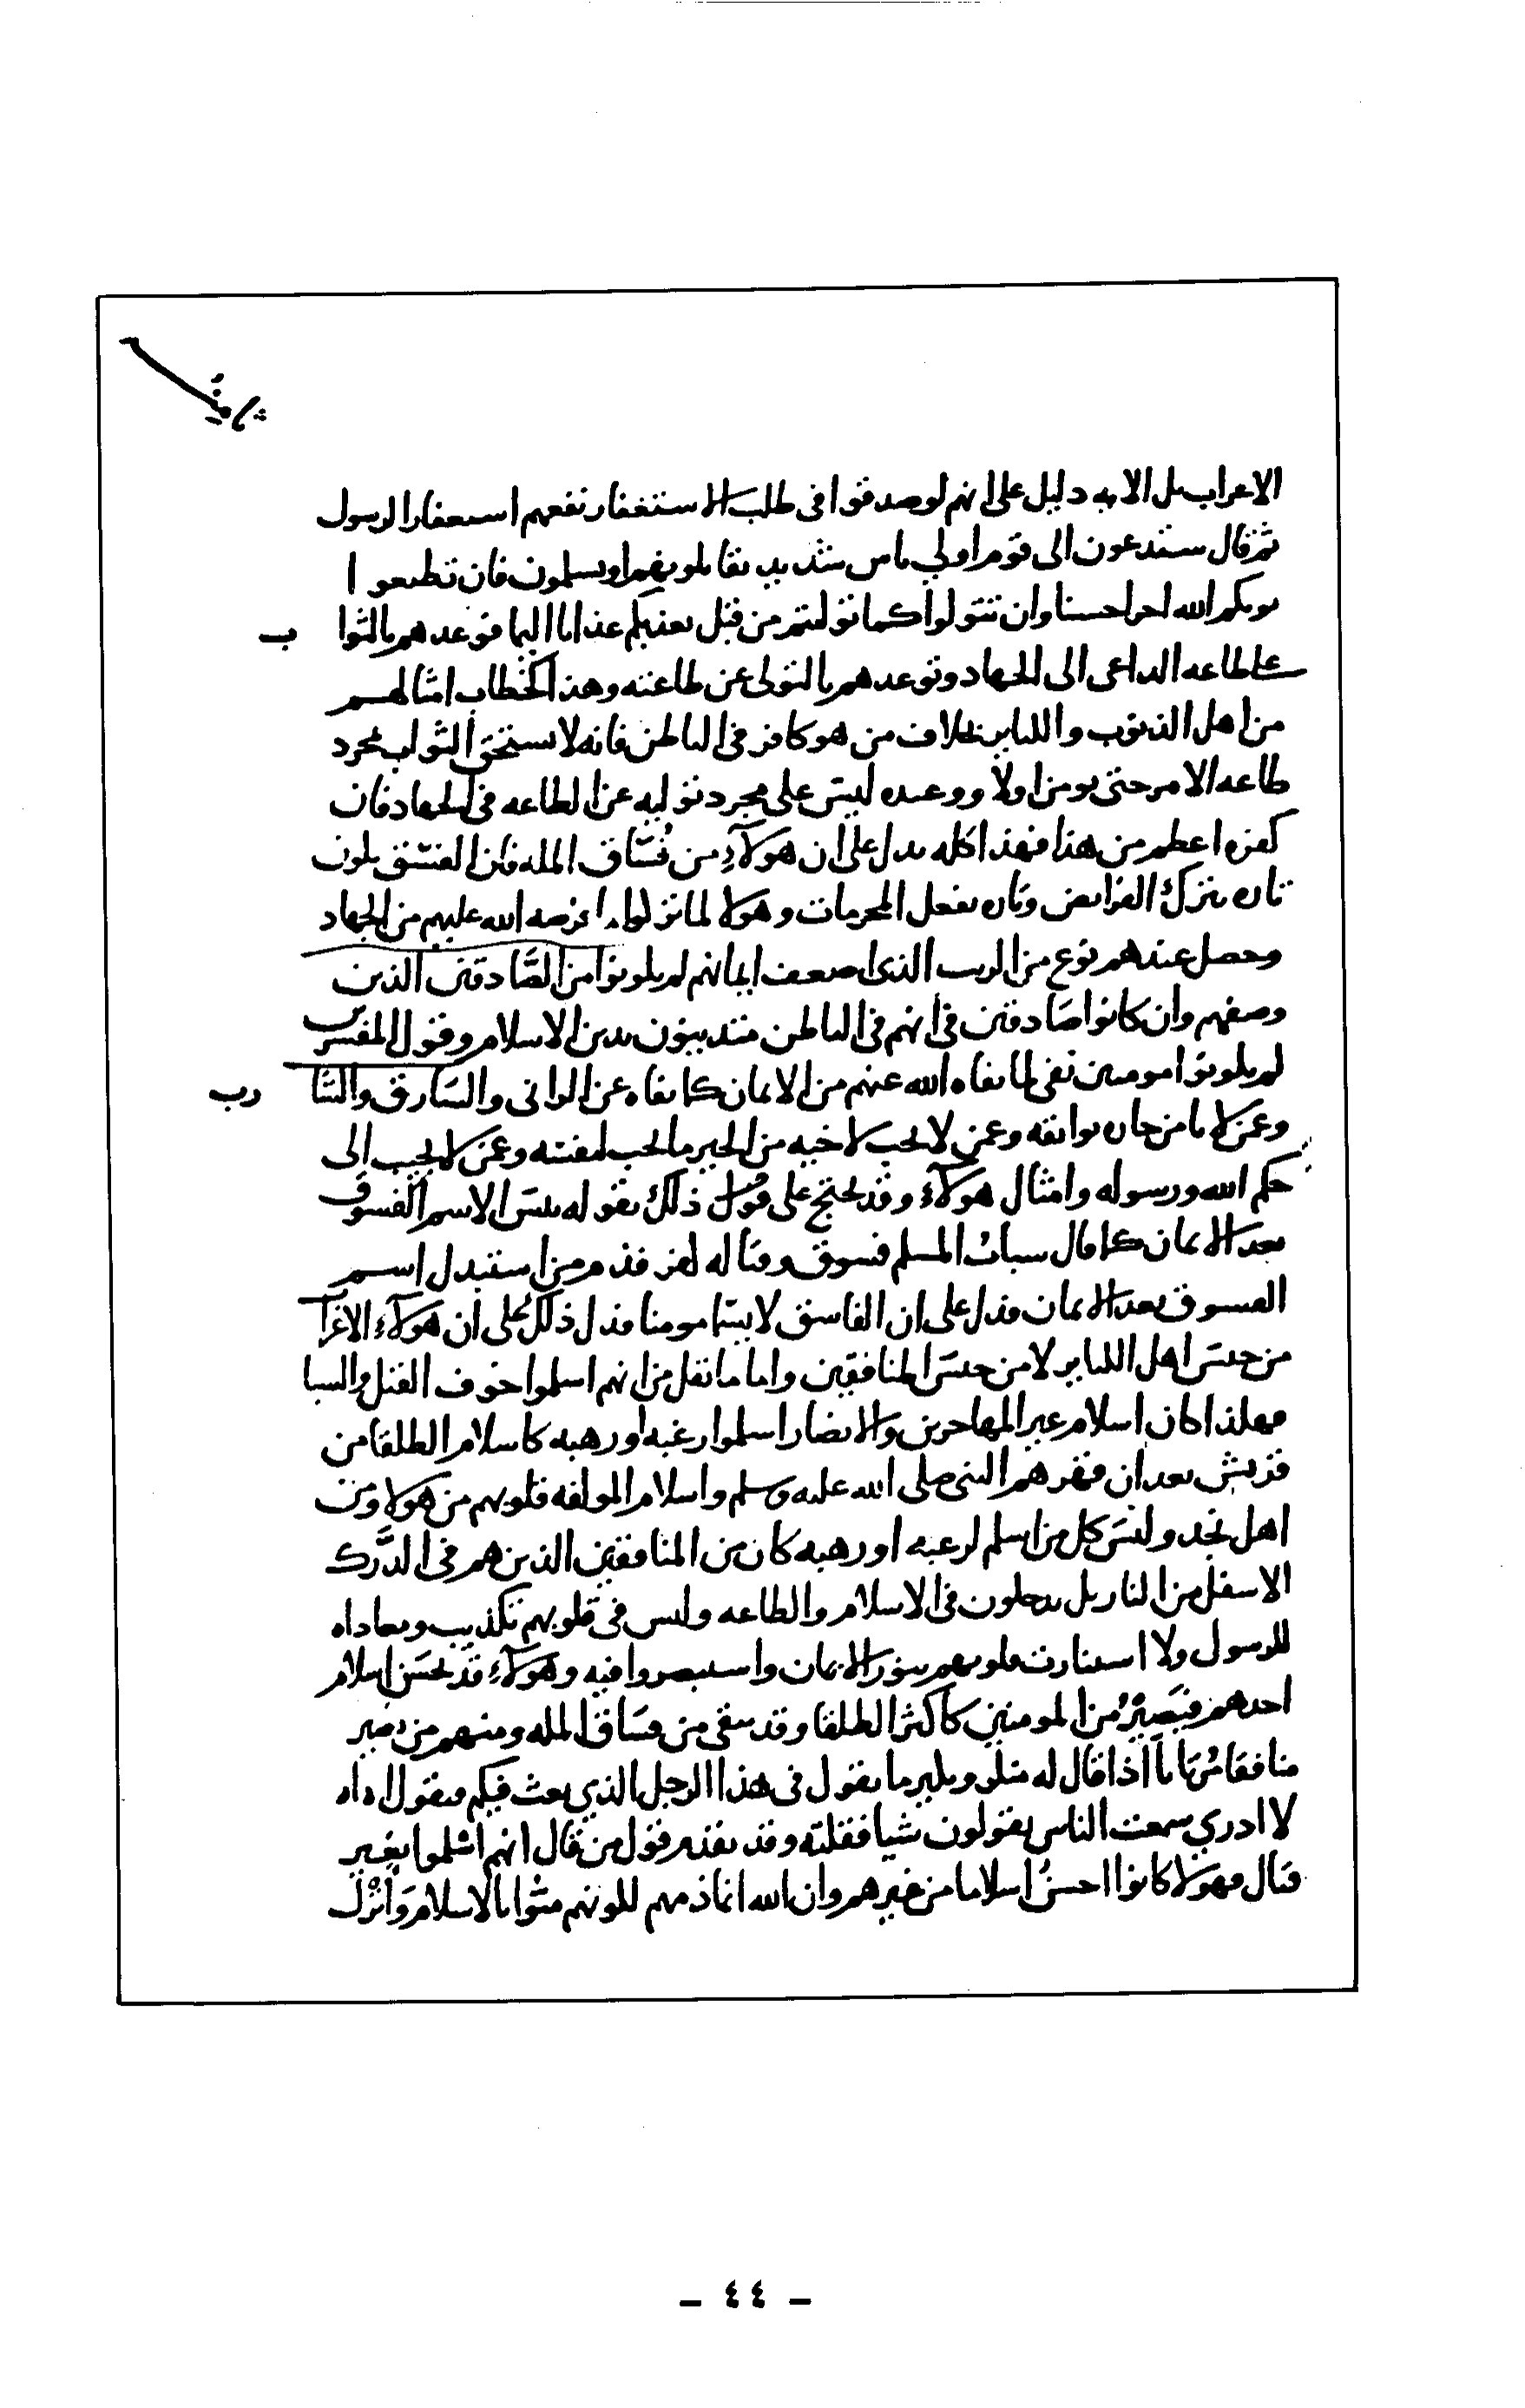 الاعراب بل الايه دليل على انهم لو صدقوا في طلب الاستغفار نفعهم استغفار الرسول
ثم قال ستدعون الى قوم اولي باس شديد تقاتلونهم او يسلمون فان تطيعوا
يوتكم الله اجرا حسنا وان تتولوا كما توليتم من قبل يعذبكم عذابا اليما فوعدهم بالثوا ب
على طاعه الداعى الى الجهاد وتوعدهم بالتولى عن طاعته وهذا كخطاب امثالهم
من اهل الذنوب والكباير بخلاف من هو كافر في الباطن فانه لا يستحق الثواب بمجرد
طاعه الامر حتى يومن اولا ووعيده ليس على مجرد توليه عن الطاعه في الجهاد فان
كفره اعظم من هذا فهذا كله يدل على ان هولاء من فساق المله فان الفسق يكون
تاره بترك الفرايض وتاره بفعل المحرمات وهولا لما تركوا ما فرضه الله عليهم من الجهاد
وحصل عندهم نوع من الريب الذي اضعف ايمانهم لم يكونوا من الصادقين الذين
وصفهم وان كانوا صادقين في انهم في الباطن متدينون بدين الاسلام وقول المفسرين
لم يكونوا مومنين نفي لما نفاه الله عنهم من الايمان كما نفاه عن الزاني والسارق والشا رب
وعن لا يامن جاره بوايقه وعمن لا يحب لاخيه من الخير ما يحب لنفسه وعمن لا يجيب الى
حكم الله ورسوله وامثال هولاء وقد يحتج على قول ذلك بقوله بيس الاسم الفسوق
بعد الايمان كما قال سباب المسلم فسوق وقتاله كفر فذم من استبدل اسم
الفسوق بعد الايمان فدل على ان الفاسق لا يسما مومنا فدل ذلك على ان هولاء الاعرا
من جنس اهل الكباير لا من جنس المنافقين واما ما نقل من انهم اسلموا خوف القتل والسبا
فهكذا كان اسلام غير المهاجرين والانصار اسلموا رغبه او رهبه كاسلام الطلقا من
قريش بعد ان قهرهم النبي صلى الله عليه وسلم واسلام المولفه قلوبهم من هولا ومن
اهل نجد وليس كل من اسلم لرغبه او رهبه كان من المنافقين الذين هم في الدرك
الاسفل من النار بل يدخلون في الاسلام والطاعه وليس في قلوبهم تكذيب ومعاداه
للرسول ولا استنارت قلوبهم بنور الايمان واستبصروا فيه وهولاء قد يحسن اسلام
احدهم فيصير من المومنين كاكثر الطلقا وقد يبقى من فساق المله ومنهم من يصير
منافقا مرتابا اذا قال له منكر ونكير ما تقول في هذا الرجل الذي بعث فيكم فيقول هاه
لا ادري سمعت الناس يقولون شيا فقلته وقد تقدم قول من قال انهم اسلموا بغير
قتال فهولا كانوا احسن اسلاما من غيرهم وان الله انما ذمهم لكونهم منوا بالاسلام وانزل
- ٤٤ -